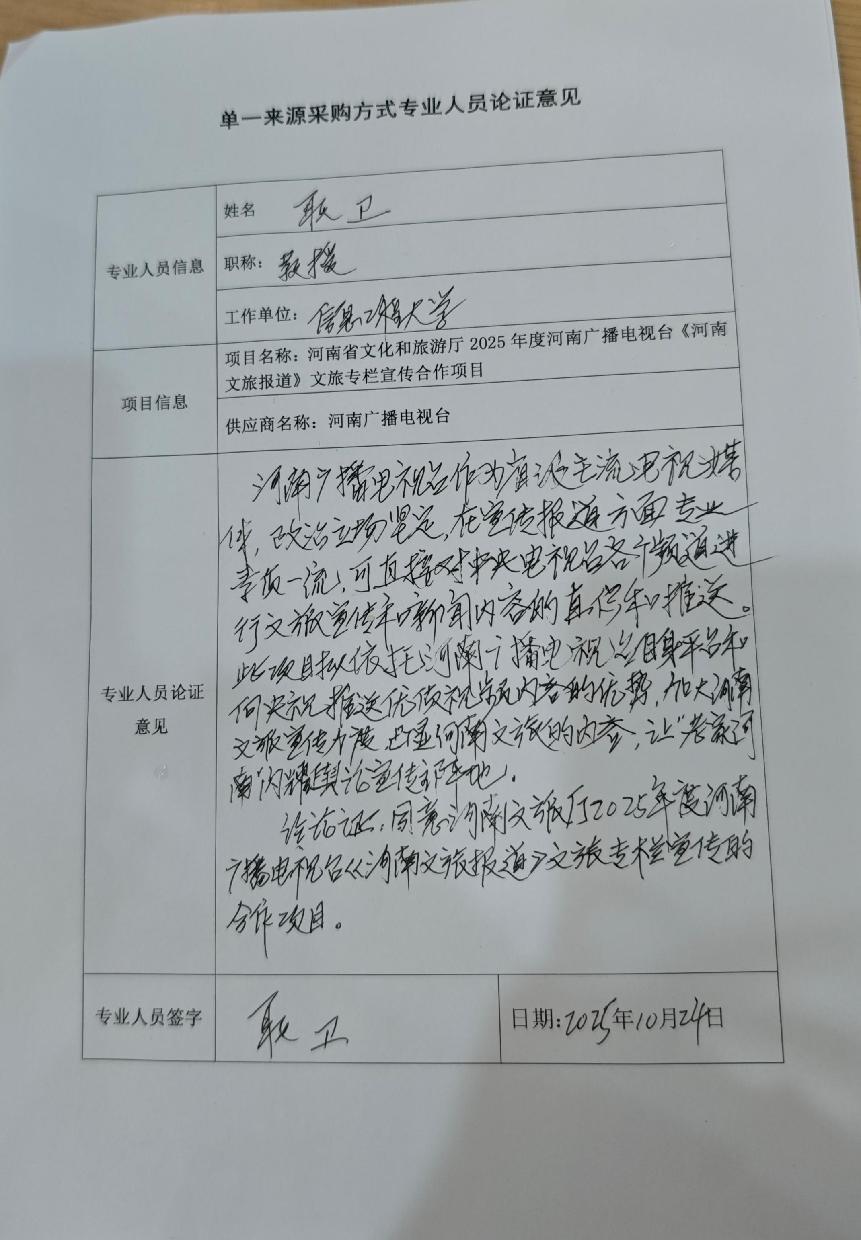 单一来源采购方式专业人员论证意见
专业人员信息
姓名 耿卫
职称：教授
工作单位：信息工程大学
项目信息
项目名称：河南省文化和旅游厅 2025 年度河南广播电视台《河南
文旅报道》文旅专栏宣传合作项目
供应商名称：河南广播电视台
专业人员论证
意见
河南广播电视台作为省级主流电视媒
体，政治立场坚定，在宣传报道方面专业
素质一流，可直接对中央电视台各个频道进
行文旅宣传和新闻内容的直供和推送。
此项目拟依托河南广播电视台自身平台和
向央视推送优质视频内容的优势，加大河南
文旅宣传力度，凸显河南文旅的内容，让“老家河
南”闪耀舆论宣传主阵地。
经论证，同意河南文旅厅2025年度河南
广播电视台《河南文旅报道》文旅专栏宣传的
合作项目。
专业人员签字
耿卫
日期：2025年10月24日